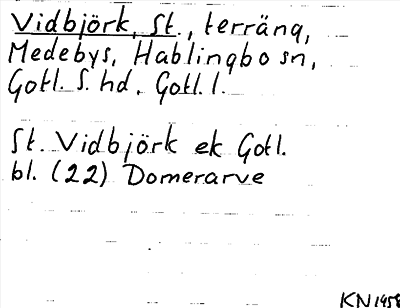 Vidbjörk, St., terräng,
Medebys, Hablingbo sn,
Gotl. S. hd. Gotl. l.
St. Vidbjörk ek Gotl.
bl. (22) Domerarve
KN 1958